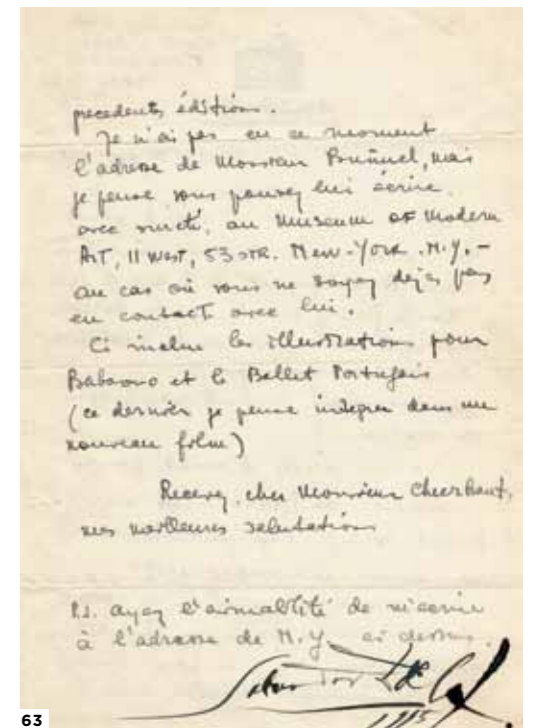 precedents éditions.
Je n'ai pas en ce moment
l'adresse de Monsieur Buñuel, mais
je pense vous pouvez lui écrire
avec sureté, au Museum of Modern
Art, 11 West, 53 STR. New-York. N.Y. -
au cas où vous ne soyez deja pas
en contact avec lui.
Ci inclu les illustrations pour
Babaouo et le Ballet Portugais
(ce dernier je pense integrer dans un
nouveau film)
Recevez, cher Monsieur
mes meilleures salutations
P.S. ayez l'aimablité de m'ecrire
à l'adresse de N.Y. ci dessus.
Salvador Dalí
63